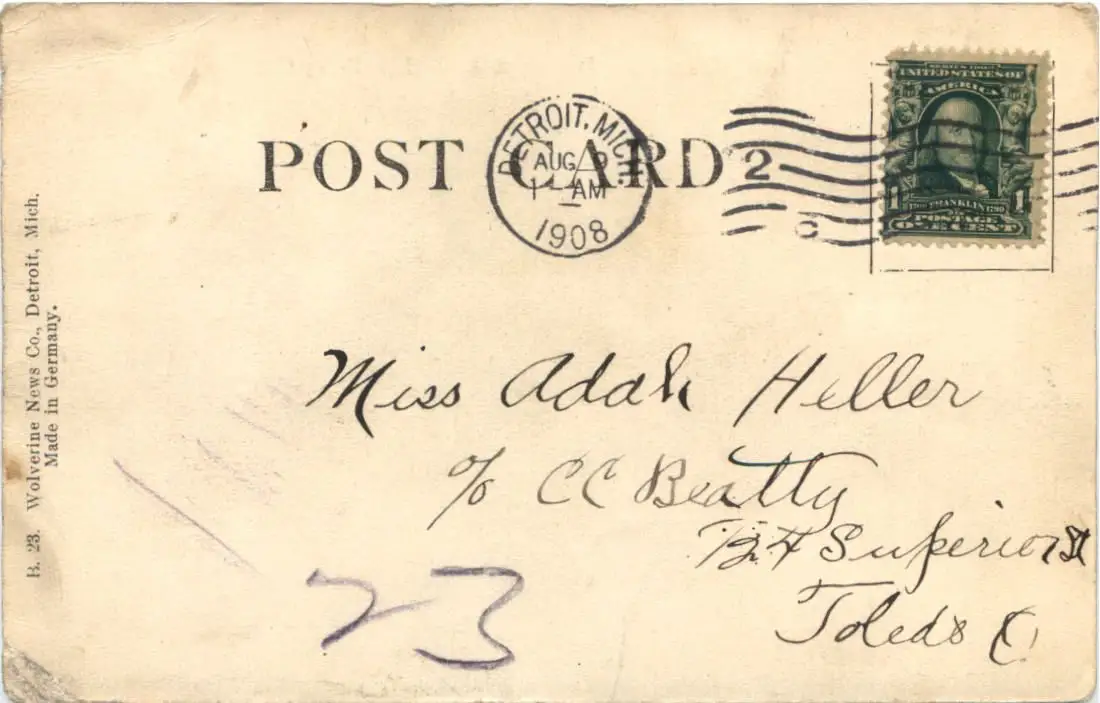 POST CARD
DETROIT, MICH.
AUG 9
1 - AM
1908
2
C
SERIES 1902
UNITED STATES OF
AMERICA
1 FRANKLIN 1790 1
POSTAGE
ONE CENT
Miss Adah Heller
c/o CC Beatty
Superior St
Toledo O
23
R. 23. Wolverine News Co., Detroit, Mich.
Made in Germany.